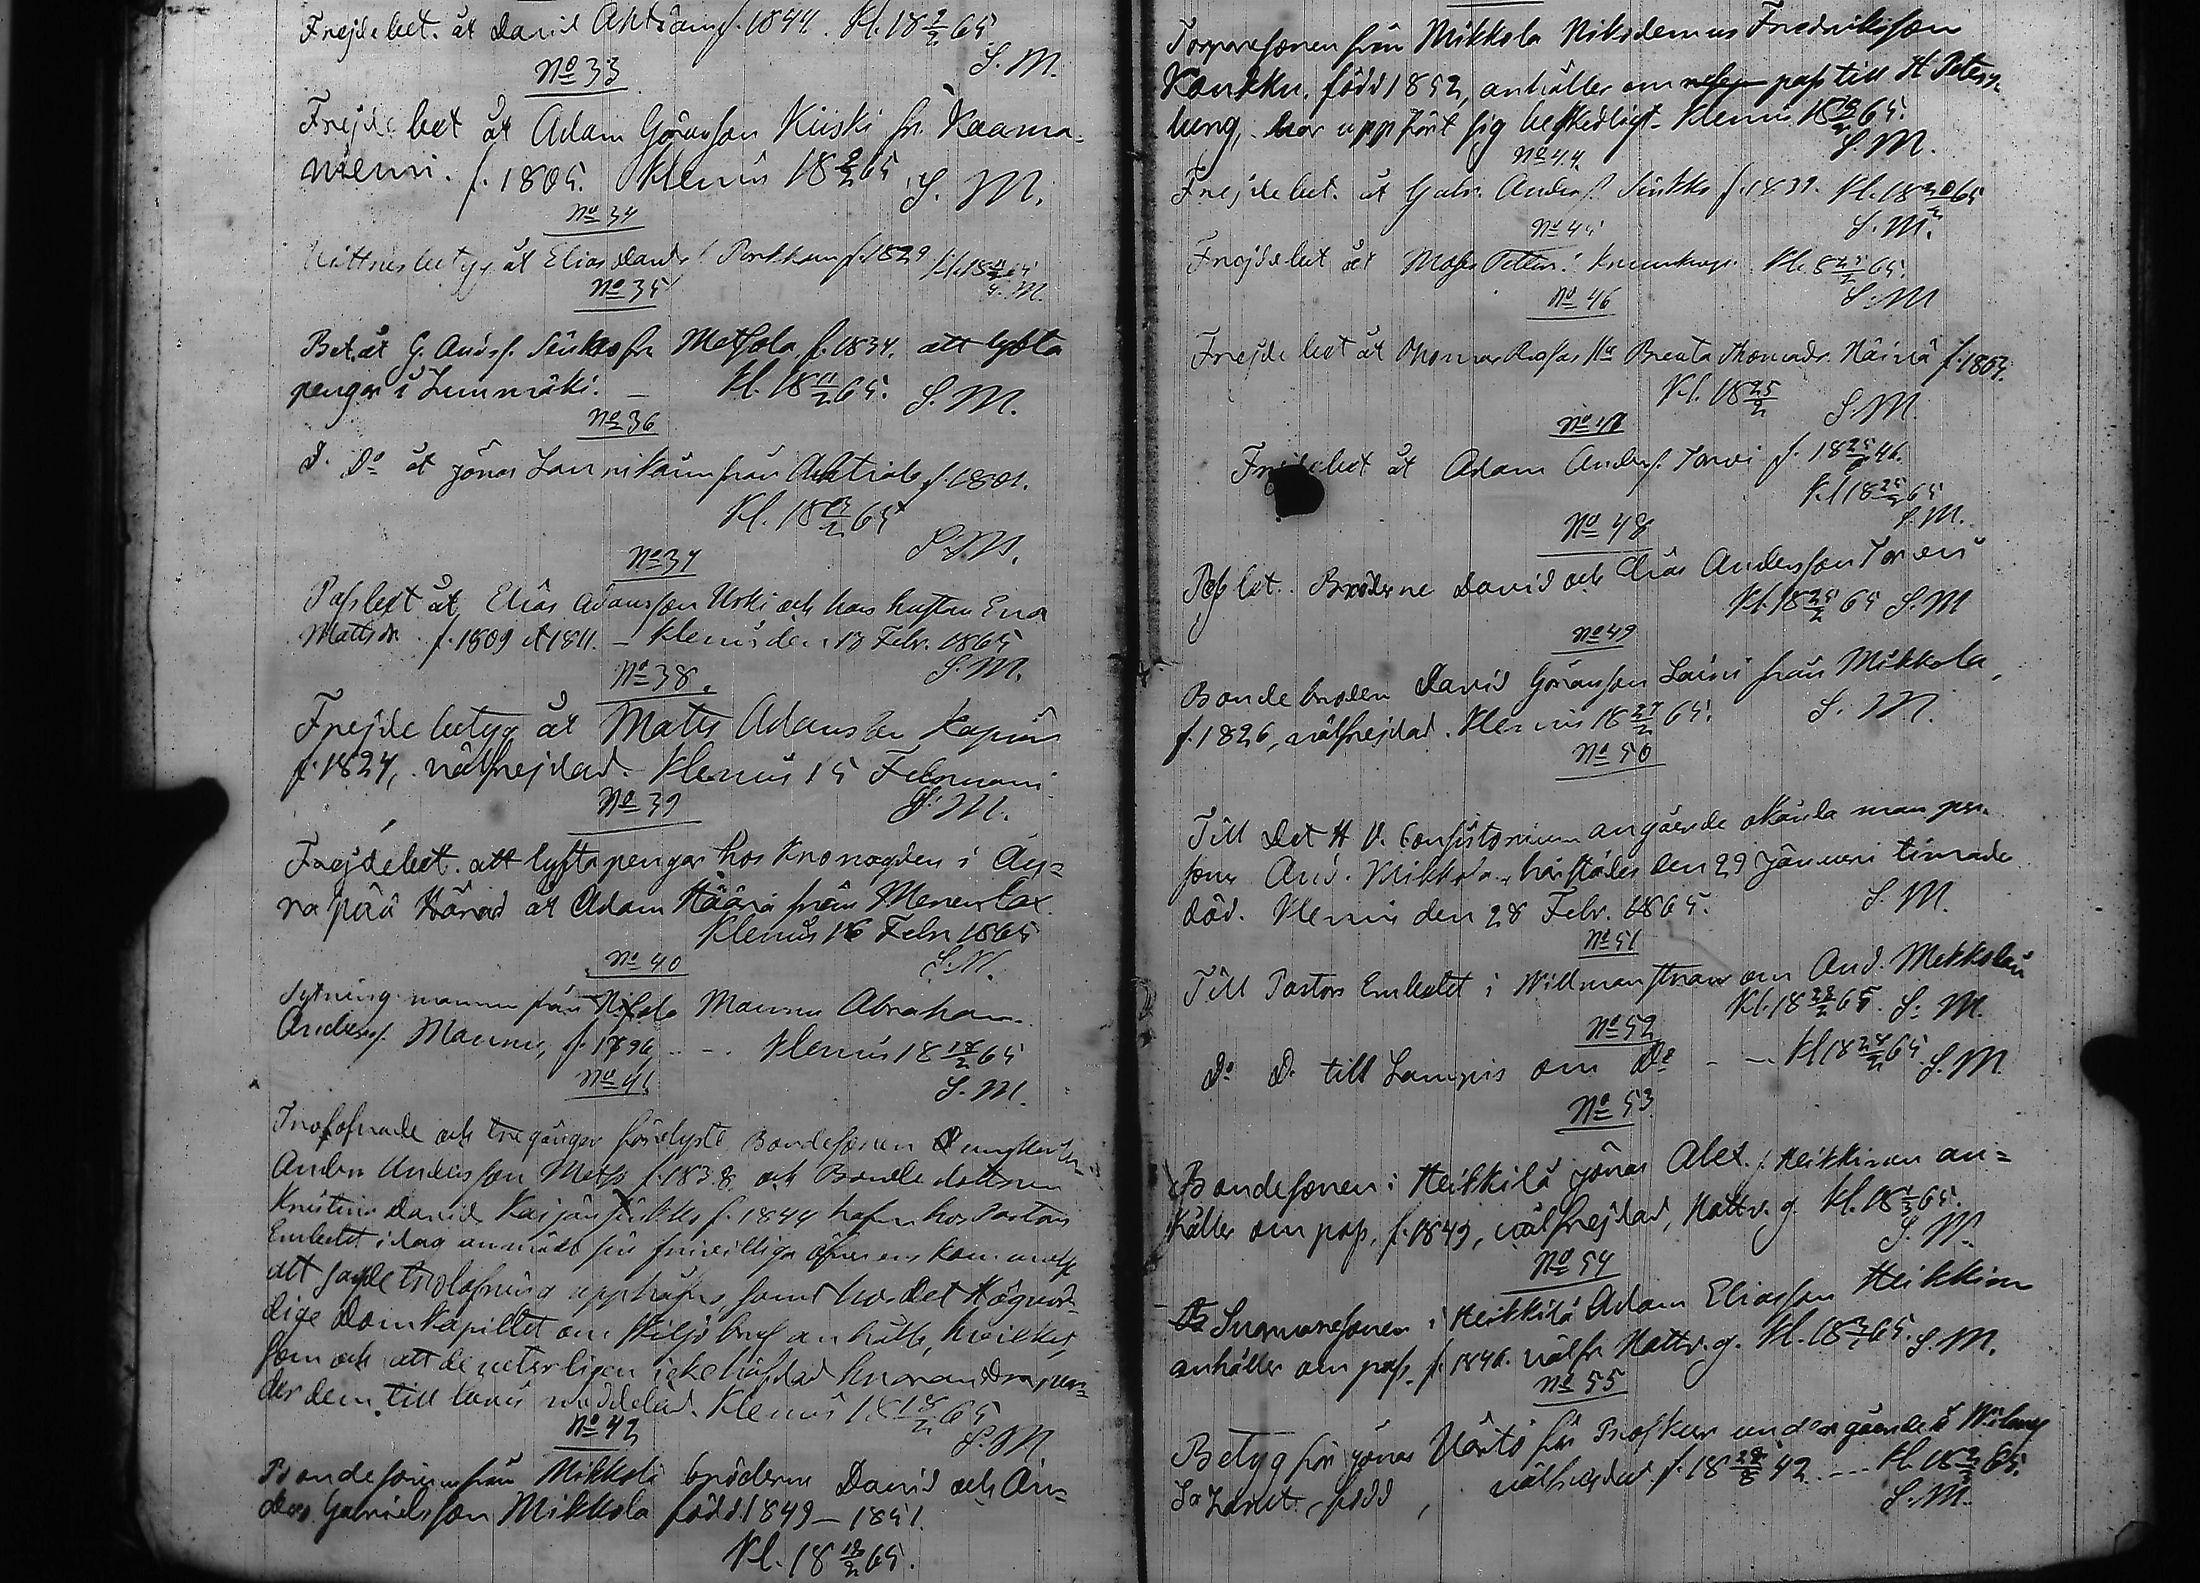 Frejdebet. åt David Ahtiain f. 1844. Kl. 18 9/2 65
S. M.
No 33
Frejdebet åt Adam Göransson Kiiski fr. Kaama-
niemi. f. 1805. Klemis 18 9/2 65 S. M.
No 34
Vittnesbetyg åt Elias Davids. f. 1829 Kl. 18 11/2 65
S. M.
No 35
Bet. åt G. Andrs. Sinkko fr. Metsola f. 1834. att lyfta
pengar i Lummäki. — Kl. 18 11/2 65. S. M.
No 36
D. Do åt Jönas Lannikain från Ahtiala f. 1801.
Kl. 18 13/2 65
S. M.
No 37
Passbet åt Elias Adamsson Urki och hans hustru Eva
Mattsdr. f. 1809 et 1811. — Klemis den 13 Febr. 1865
S. M.
No 38.
Frejdebetyg åt Matts Adamsson Kapiain
f. 1824, välfrejdad. Klemis 15 Februari
S. M.
No 39
Frejdebet. att lyfta pengar hos Kronofogden i Äy=
räpää Härad åt Adam Häärä från Merenlax.
Klemis 16 Febr 1865
S. M.
No 40
Sytningsmannen från Mannu Abraham
Anders. Mannu, f. 1796, - - . Klemis 18 18/2 65
S. M.
No 41
Trolofvade och tre gånger förelyste Bondesonen
Anders Andersson f. 1838 och Bondedottren
Kristina Davids f. 1844 hafva hos Pastors
Embetet i dag anmält sin frivilliga öfverenskommelse
att sagde trolofning upphäfves, samt hos det Högvör-
dige Domkapitlet om skiljobref anhålla, hvilket
som och att de veterligen icke häfdad hvarandra
der dem till bevis meddelad. Klemis 18 18/2 65
S. M
No 42
Bondesönerna från Mikkola bröderne David och An=
ders Gabrielsson Mikkola född 1849 — 1851.
Kl. 18 18/2 65.
Torparesonen från Mikkola Nikodemus Fredriksson
Kaukku, född 1852, anhåller om pass till St Peters-
burg, har uppfört sig beskedligt. Klemis 18 19/2 65.
S. M.
No 44
Frejdebet. åt Gabr. Anders. Sinkko f. 1839. Kl. 18 20/2 65
S. M.
No 45
Frejdebet åt Kl. 8 21/2 65.
S. M
No 46
Frejdebet åt Beata Thomasdr. Näinä f. 1804.
Kl. 18 25/2
S. M
No 47
Frejdebet åt Adam Anders. Torvi f. 18 25/ 46.
Kl 18 25/2 65
S. M.
No 48
Passbet. Bröderne David och Elias Andersson Torvi
Kl. 18 25/2 65 S. M
No 49
Bondebroder David Göransson Laini från Mikkola,
f. 1826, välfrejdad. Klemis 18 27/2 65. S. M.
No 50
Till Det H. V. Consistorium angående okända mansper-
sonen And. Mikkola, härstädes den 29 Januari timade
död. Klemis den 28 Febr. 1865.
S. M.
No 51
Till Pastors Embetet i Willmanstrand om And. Mikkola
Kl. 18 28/2 65. S. M.
No 52
Do D. till Lampis om Do - - Kl 18 28/2 65 S. M.
No 53
Bondesonen i Heikkilä Jönas Alex. s. Heikkinen an=
håller om pass, f. 1849, välfrejdad, Nattv. g. Kl. 18 1/3 65.
S. M.
No 54
Sonen i Heikkilä Adam Eliasson Heikkinen
anhåller om pass f. 1846. välfr Nattv. g. Kl. 18 3/3 65. S. M.
No 55
Betyg för Jönas undergående i Wiborg
Lazaret, född, välfrejdad f. 18 28/8 42 ---- Kl. 18 3/3 65.
S. M.